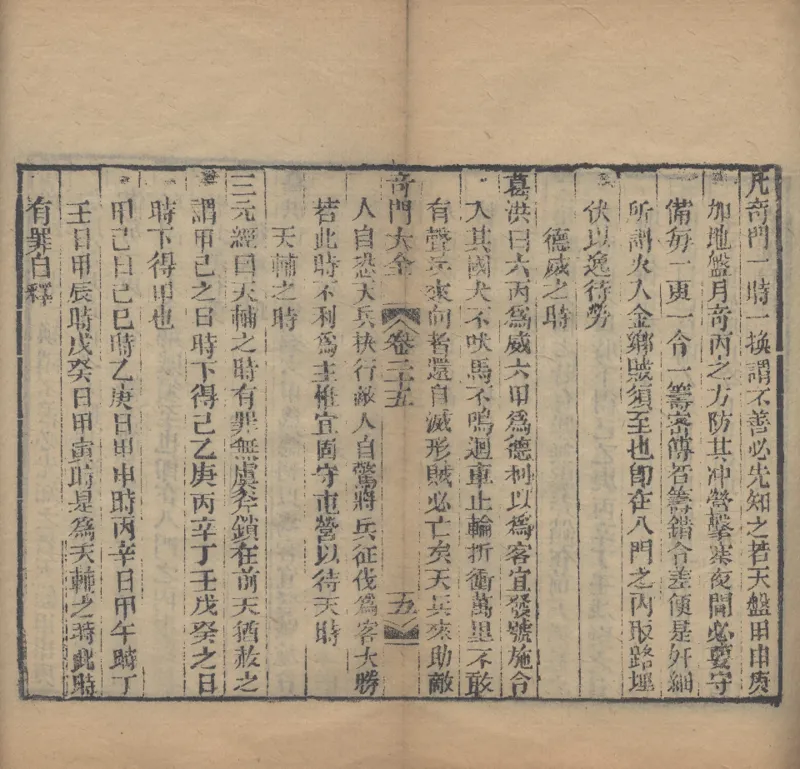 凡奇門一時一換謂不善必先知之若天盤甲申庚
加地盤月奇丙之方防其冲營擊寨夜間必要守
備每一更一令一籌密傳若籌錯令差便是奸細
所謂火入金鄉賊須至也卽在八門之內取路埋
伏以逸待勞
德威之時
葛洪曰六丙爲威六甲爲德利以爲客宜發號施令
入其國犬不吠馬不鳴迴車止輪折衝萬里不敢
有聲兵來向者還自滅形賊必亡矣天兵來助敵
奇門大全 卷二十五 五
人自恐天兵抉行敵人自驚將兵征伐爲客大勝
若此時不利爲主惟宜固守屯營以待天時
天輔之時
三元經曰天輔之時有罪無虞斧鎖在前天猶赦之
謂甲己之日時下得己乙庚丙辛丁壬戊癸之日
時下得甲也
甲己日己巳時乙庚日甲申時丙辛日甲午時丁
壬日甲辰時戊癸日甲寅時是爲天輔之時此時
有罪自釋